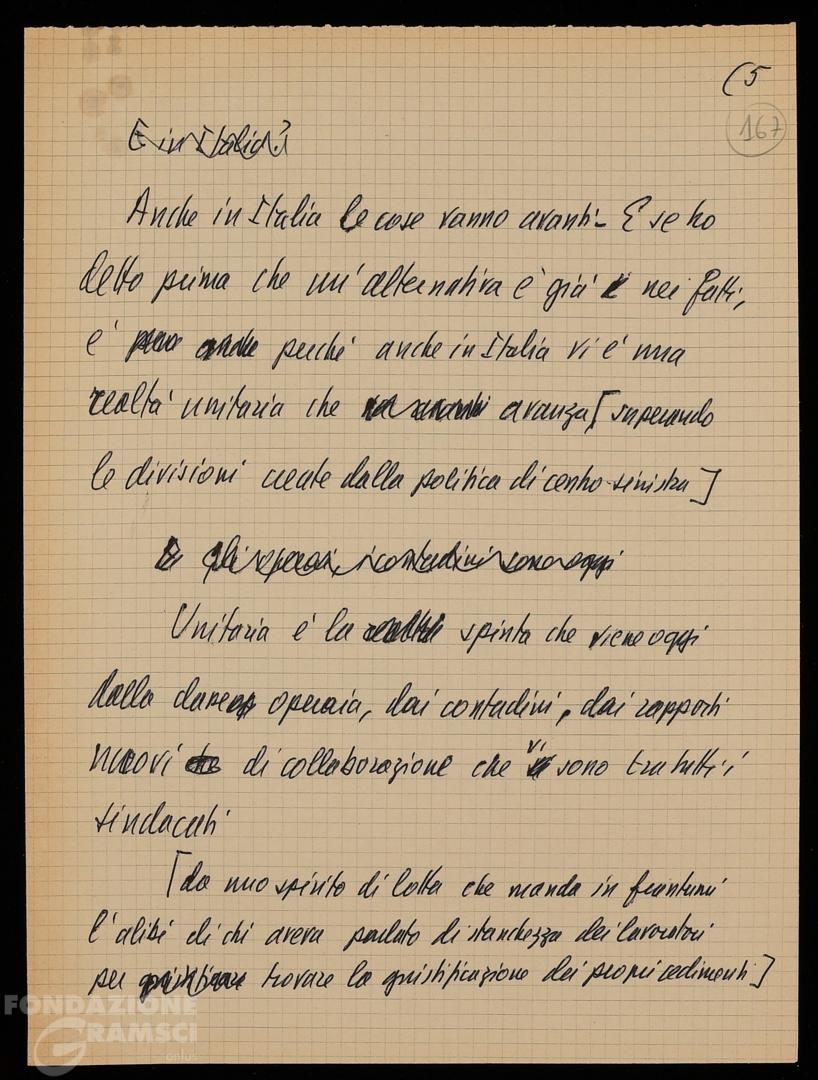 (5
167
E in Italia?
Anche in Italia le cose vanno avanti - E se ho
detto prima che un'alternativa è già nei fatti,
è perché anche in Italia vi è una
realtà unitaria che avanza [superando
le divisioni create dalla politica di centro-sinistra]
gli operai, i contadini sono oggi
Unitaria è la realtà spinta che viene oggi
dalla classe operaia, dai contadini, dai rapporti
nuovi che di collaborazione che vi sono tra tutti i
sindacati
[da uno spirito di lotta che manda in frantumi
l'alibi di chi aveva parlato di stanchezza dei lavoratori
per trovare la giustificazione dei propri cedimenti]
FONDAZIONE
GRAMSCI
onlus